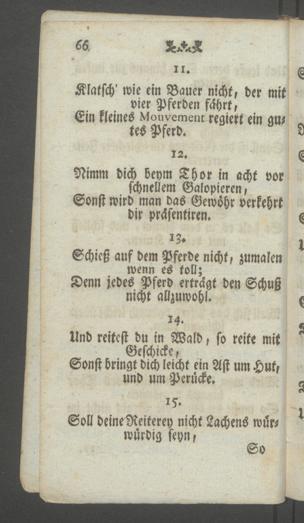 66
11.
Klatsch' wie ein Bauer nicht, der mit
vier Pferden fährt,
Ein kleines Mouvement regiert ein gu-
tes Pferd.
12.
Nimm dich beym Thor in acht vor
schnellem Galopieren,
Sonst wird man das Gewöhr verkehrt
dir präsentiren.
13.
Schieß auf dem Pferde nicht, zumalen
wenn es toll;
Denn jedes Pferd erträgt den Schuß
nicht allzuwohl.
14.
Und reitest du in Wald, so reite mit
Geschicke,
Sonst bringt dich leicht ein Ast um Hut,
und um Perücke.
15.
Soll deine Reiterey nicht Lachens wür-
würdig seyn,
So